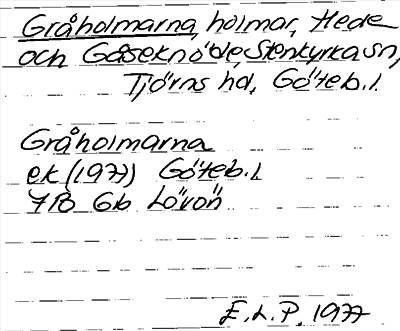 Gråholmarna, holmar, Hede
och Gåseknöde, Stenkyrka sn,
Tjörns hd, Göteb.l.
Gråholmarna
ek (1977) Göteb.l.
7B 6b Lövön
E.L.P. 1977